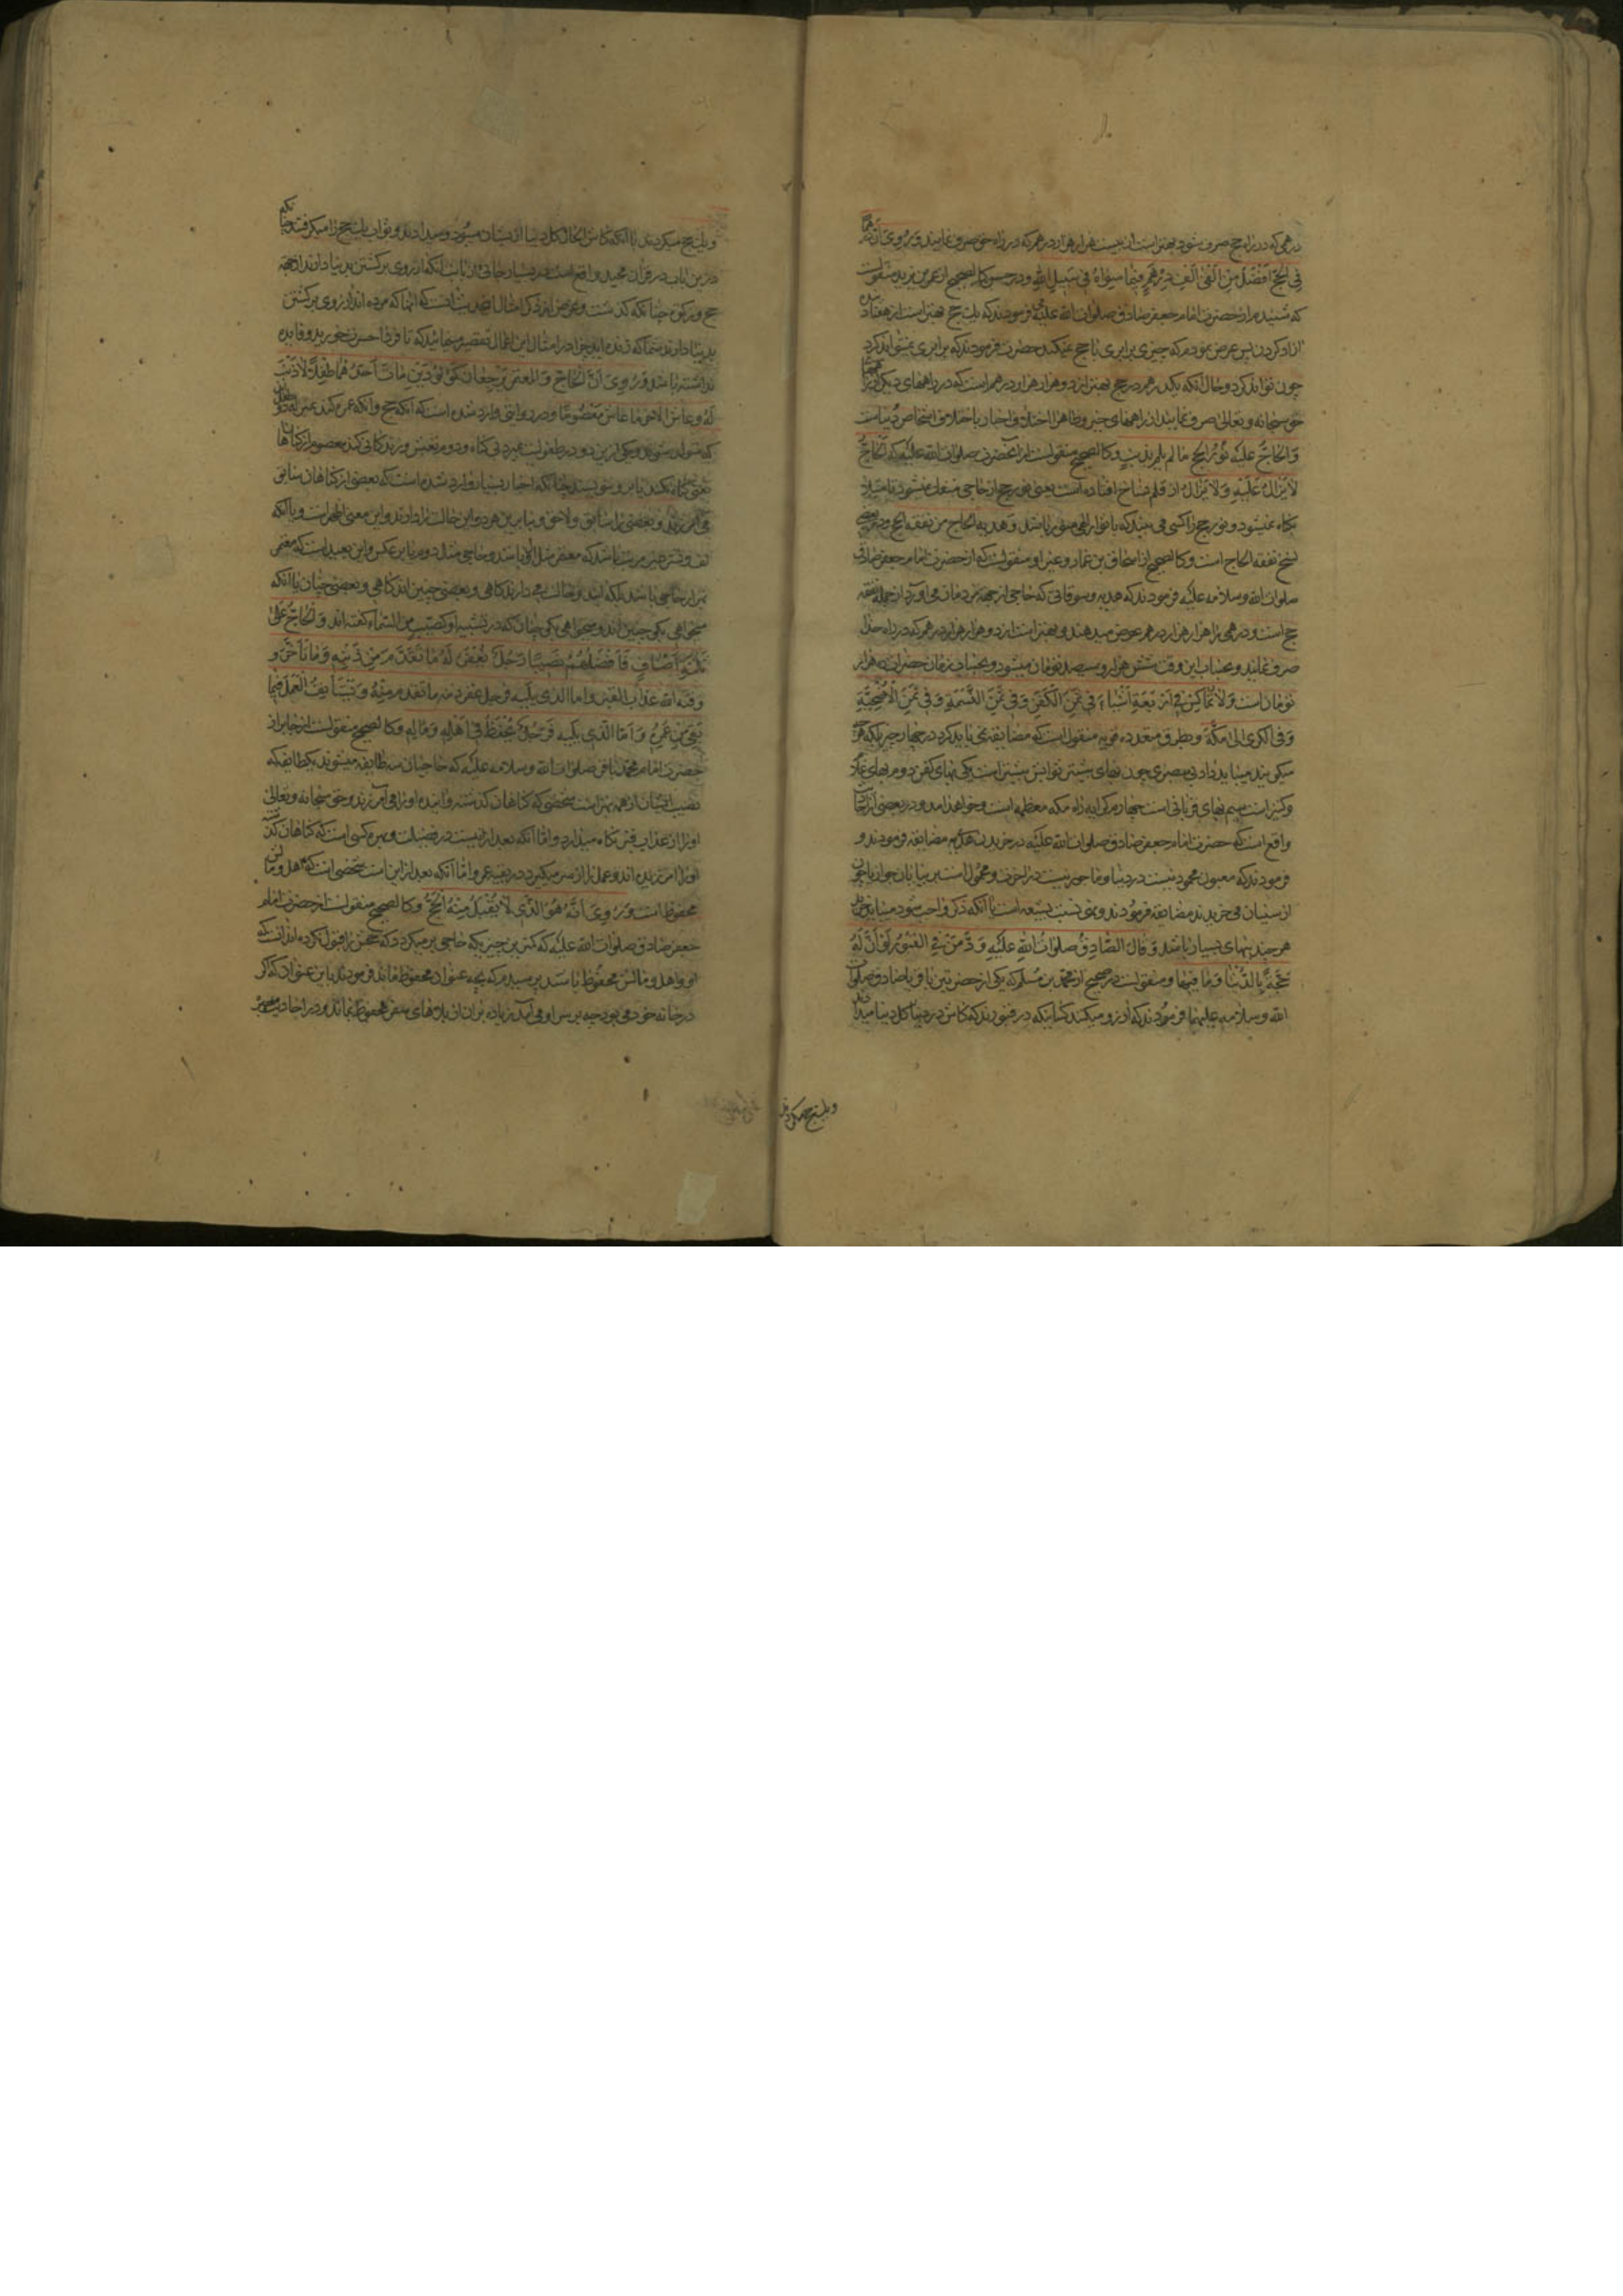 درهمی که در راه حج صرف شود بهتر است از بیست هزار هزار درهم که در راه حق صرف نمایند وَ رُوِیَ أَنَّ دِرْهَماً
فِی الْحَجِّ أَفْضَلُ مِنْ أَلْفَیْ أَلْفِ دِرْهَمٍ فِیمَا سِوَاهُ فِی سَبِیلِ اللهِ و در حسن کالصحیح از عمر بن یزید منقولست
که شنیدم از حضرت امام جعفر صادق صلوات الله علیه فرمودند که یک حج بهتر است از هفتاد بنده
آزاد کردن پس عرض نمودم که چیزی برابری با حج نمیکند حضرت فرمودند که برابری نمیتواند کرد
چون تواند کرد و حال آنکه یکدرهم در حج بهتر از دو هزار هزار درهم است که در راههای دیگر از راههای
حق سبحانه و تعالی صرف نمایند از راههای خیر و ظاهرا اختلاف اخبار باختلاف اشخاص و نیاتست
وَ الْحَاجُّ عَلَیْهِ نُورُ الْحَجِّ مَا لَمْ یُلِمَّ بِذَنْبٍ و کالصحیح منقولست از آنحضرت صلوات الله علیه که الْحَاجُّ
لَا یَزَالُ عَلَیْهِ وَ لَا یَزَالُ از قلم نساخ افتاده است یعنی نور حج از حاجی منفک نمیشود تا مبتلا
بگناه نمیشود و نور حج را کسی می بیند که بانوار الهی منور باشد وَ هدیة الحاج من نفقة الحج و در بعضی
نسخ نفقة الحاج است و کالصحیح از اسحاق بن عمار و غیر او منقولست که از حضرت امام جعفر صادق
صلوات الله و سلامه علیه فرمودند که هدیه و سوقاتی که حاجی از جهة مردمان می آورد از جمله نفقه
حج است و درهمی را هزار هزار درهم عوض میدهند و بهتر است از دو هزار هزار درهم که در راه خدا
صرف نمایند و بحساب این وقت شش هزار و سیصد تومان میشود و بحساب زمان حضرات ده هزار
تومان است وَ لَا تُمَاکِسْ فِی أَرْبَعَةِ أَشْیَاءَ فِی ثَمَنِ الْکَفَنِ وَ فِی ثَمَنِ النَّسَمَةِ وَ فِی ثَمَنِ الْأُضْحِیَّةِ
وَ فی الکری الی مَکَّةَ و بطرق متعدده قویه منقولست که مضایقه نمی باید کرد در چهار چیز بلکه هر چه
میگویند میباید داد بی مصری چون بهای بیشتر ثوابش بیشتر است یکی بهای کفن دوم بهای غلام
و کنیز است سیم بهای قربانی است چهارم کرایه راه مکه معظمه است و خواهد آمد و در بعضی از اخبار
واقع است که حضرت امام جعفر صادق صلوات الله علیه در خریدن هدیه مضایقه فرمودند و
فرمودند که مغبون محمود نیست در دنیا و ماجور نیست در آخرت و محمول است بر بیان جواز یا چون
از سنیان می خریدند مضایقه فرمودند و نهی نسبت بشیعه است با آنکه ذکر واجب شود میباید خرید
هر چند بهای بسیار باشد وَ قالَ الصَّادِقُ صلوات الله علیه وَدَّ مَنْ فِی الْقُبُورِ لَوْ أَنَّ لَهُ
حَجَّةً بِالدُّنْیَا وَ مَا فِیهَا و منقولست در صحیح از محمد بن مسلم که یکی از حضرتین باقر یا صادق صلوات
الله و سلامه علیهما فرمودند که آرزو میکنند کسانیکه در قبورند که کاش در دنیا کل دنیا میدادند
و یک حج میکردند
و یک حج میکردند با آنکه کاش الحال کل دنیا از ایشان میبود و میدادند و ثواب یک حج را میگرفتند چنانکه
درین باب در قرآن مجید واقع است در بسیار جائی از بابت آنکه آرزوی برگشتن بدنیا دارند از جهة
حج و زکوة چنانکه گذشت و غرض از ذکر امثال این حدیث آنست که آنها که مرده اند آرزوی برگشتن
بدنیا دارند شما که زنده اید چرا در امثال این اعمال تقصیر مینمائید که تا فردا حسرت خورید و فایده
نداشته باشد وَ رُوِیَ أَنَّ الْحَاجَّ وَ الْمُعْتَمِرَ یَرْجِعَانِ کَمَوْلُودَیْنِ مَاتَ أَحَدُهُمَا طِفْلاً لَا ذَنْبَ
لَهُ وَ عَاشَ الْآخَرُ مَا عَاشَ مَعْصُوماً و در روایتی وارد شده است که آنکه حج و آنکه عمره کند بمنزله دو طفل
که متولد شوند و یکی ازین دو در طفولیت بمیرد بی گناه و دوم تعیش و زندگانی کند معصوم از گناهان
یعنی گناه نکند یا بر و ننویسند چنانکه اخبار بسیار وارد شده است که بعضی از گناهان سابق
می آمرزند و بعضی را سابق و لاحق و بنابر این هر دو این حالت را دارند و این معنی اظهر است و یا آنکه
لف و نشر غیر مرتب باشد که معتمر مثل اول باشد و حاجی مثل دوم یا بر عکس و این بعید است که معتمر
بهتر از حاجی باشد بلکه ایشان دو حالت دارند گاهی و بعضی چنین اند گاهی و بعضی چنان یا آنکه
میخواهی بگو چنین اند و میخواهی بگو چنان که در تشبیه أَوْ کَصَیِّبٍ مِنَ السَّمَاءِ گفته اند وَ الْحَاجُّ عَلَی
ثَلَاثَةِ أَصْنَافٍ فَأَفْضَلُهُمْ نَصِیباً رَجُلٌ یُغْفَرُ لَهُ مَا تَقَدَّمَ مِنْ ذَنْبِهِ وَ مَا تَأَخَّرَ وَ
وَقَیهُ الله عَذَابَ الْقَبْرِ وَ اما الذی یلیه فرجل غفر ذنبه ما تقدم منه وَ یَسْتَأْنِفُ الْعَمَلَ فِیمَا
بَقِیَ مِنْ عُمُرِهِ وَ أَمَّا الَّذِی یَلِیهِ فَرَجُلٌ یُحْفَظُ فِی أَهْلِهِ وَ مَالِهِ و کالصحیح منقولست از جابر از
حضرت امام محمد باقر صلوات الله و سلامه علیه که حاجیان سه طایفه میشوند یک طایفه که
نصیب ایشان از همه بهتر است شخصی که گناهان گذشته و آینده او را می آمرزند و حق سبحانه و تعالی
او را از عذاب قبر نگاه میدارد و اما آنکه بعد ازینست در فضیلت و بهره کسی است که گناهان گذشته
او را آمرزیده اند و عمل را از سر میگیرد در بقیه عمر و اما آنکه بعد از این است شخصی است که اهل و مالش
محفوظ است وَ رُوِیَ أَنَّهُ هُوَ الَّذِی لَا یُقْبَلُ مِنْهُ الْحَجُّ و کالصحیح منقولست از حضرت امام
جعفر صادق صلوات الله علیه که کمترین چیزیکه حاجی بر میگردد که حجش را قبول نکرده اند آنست که
او و اهل و مالش محفوظ باشند پرسیدم که بچه عنوان محفوظ ماند فرمودند باین عنوان که اگر
در خانه خود می بود چه بر سر او می آمد زیاده بر آن از بلاهای سفر محفوظ بماند و در احادیث معتبر